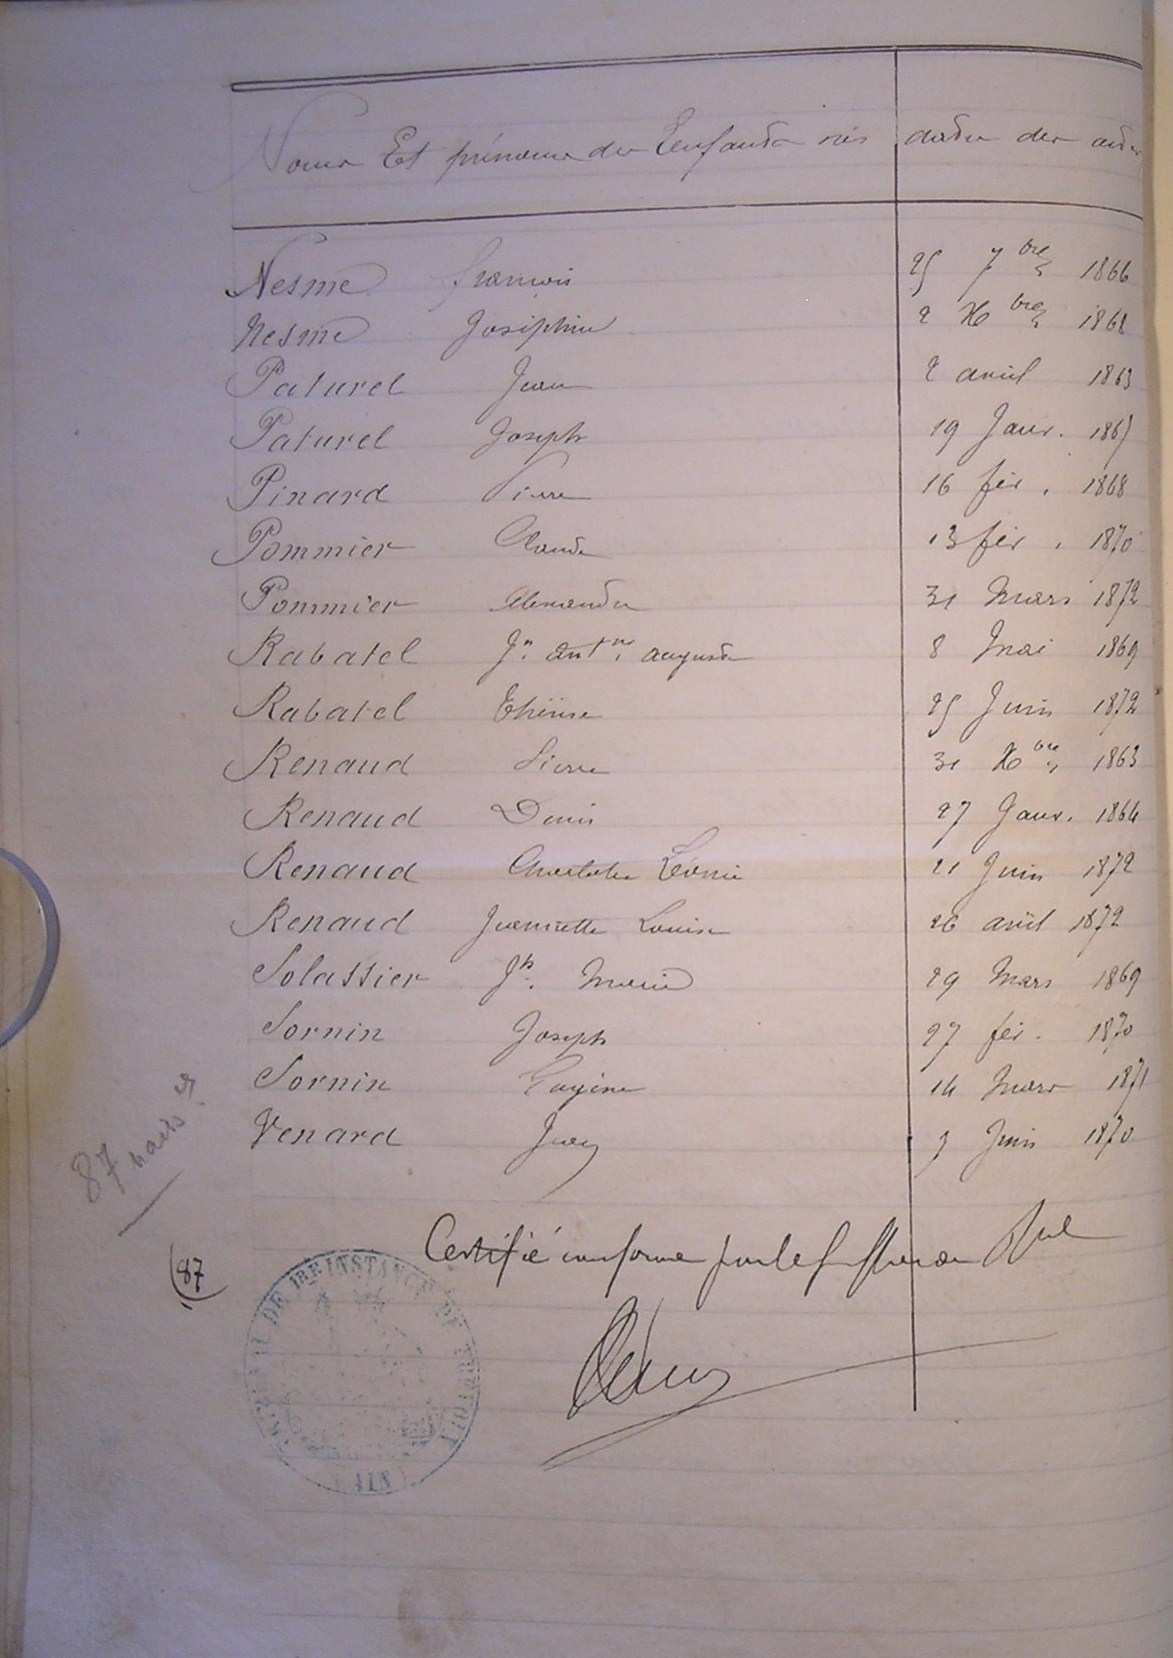 Noms Et prénoms des Enfants nés dates des actes
Nesme françois 25 7bre 1866
Nesme Joséphine 2 Xbre 1868
Paturel Jean 2 avril 1863
Paturel Joseph 19 Janv. 1867
Pinard Pierre 16 fév. 1868
Pommier Claude 13 fév. 1870
Pommier Alexandre 31 Mars 1872
Rabatel Jn. antne. auguste 8 Mai 1869
Rabatel Thérèse 25 Juin 1872
Renaud Pierre 31 Xbre 1863
Renaud Denis 27 Janv. 1864
Renaud Léonie 21 Juin 1872
Renaud Jeannette Louise 26 avril 1872
Solassier Jh. Marie 29 Mars 1869
Sornin Joseph 27 fév. 1870
Sornin Eugène 14 Mars 1871
Venard Jean 3 Juin 1870
87 naiss.es
Certifié conforme par le Greffier
(87)
DE 1RE INSTANCE DE